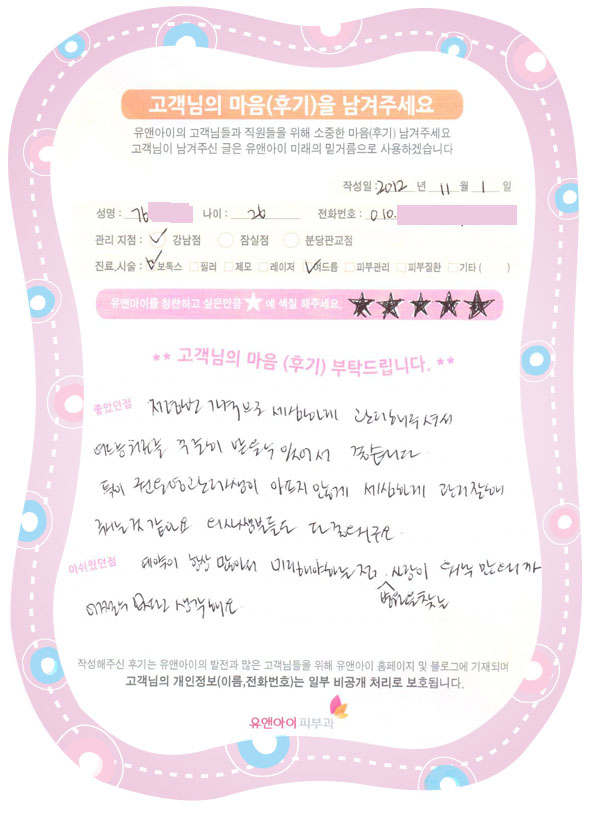 고객님의 마음(후기)을 남겨주세요
유앤아이의 고객님들과 직원들을 위해 소중한 마음(후기) 남겨주세요
고객님이 남겨주신 글은 유앤아이 미래의 밑거름으로 사용하겠습니다
작성일 : 2012 년 11 월 1 일
성명 : 나이 : 26 전화번호 : 010.
관리 지점 : 강남점 잠실점 분당판교점
진료,시술 : 보톡스 필러 제모 레이저 여드름 피부관리 피부질환 기타 ( )
유앤아이를 칭찬하고 싶은만큼 ★ 에 색칠 해주세요. ★★★★★
** 고객님의 마음 (후기) 부탁드립니다. **
좋았던점 저렴한 가격으로 세심하게 관리해주셔서
여드름치료를 꾸준히 받을수 있어서 좋습니다
특히 관리선생이 아프지 않게 세심하게 관리 잘해
주는것 같아요 의사선생분들도 다
아쉬웠던점 예약이 항상 많아서 미리해야하는 점. 사람이 워낙 많으니까
병원을찾는
생각해요
작성해주신 후기는 유앤아이의 발전과 많은 고객님들을 위해 유앤아이 홈페이지 및 블로그에 기재되며
고객님의 개인정보(이름,전화번호)는 일부 비공개 처리로 보호됩니다.
유앤아이 피부과